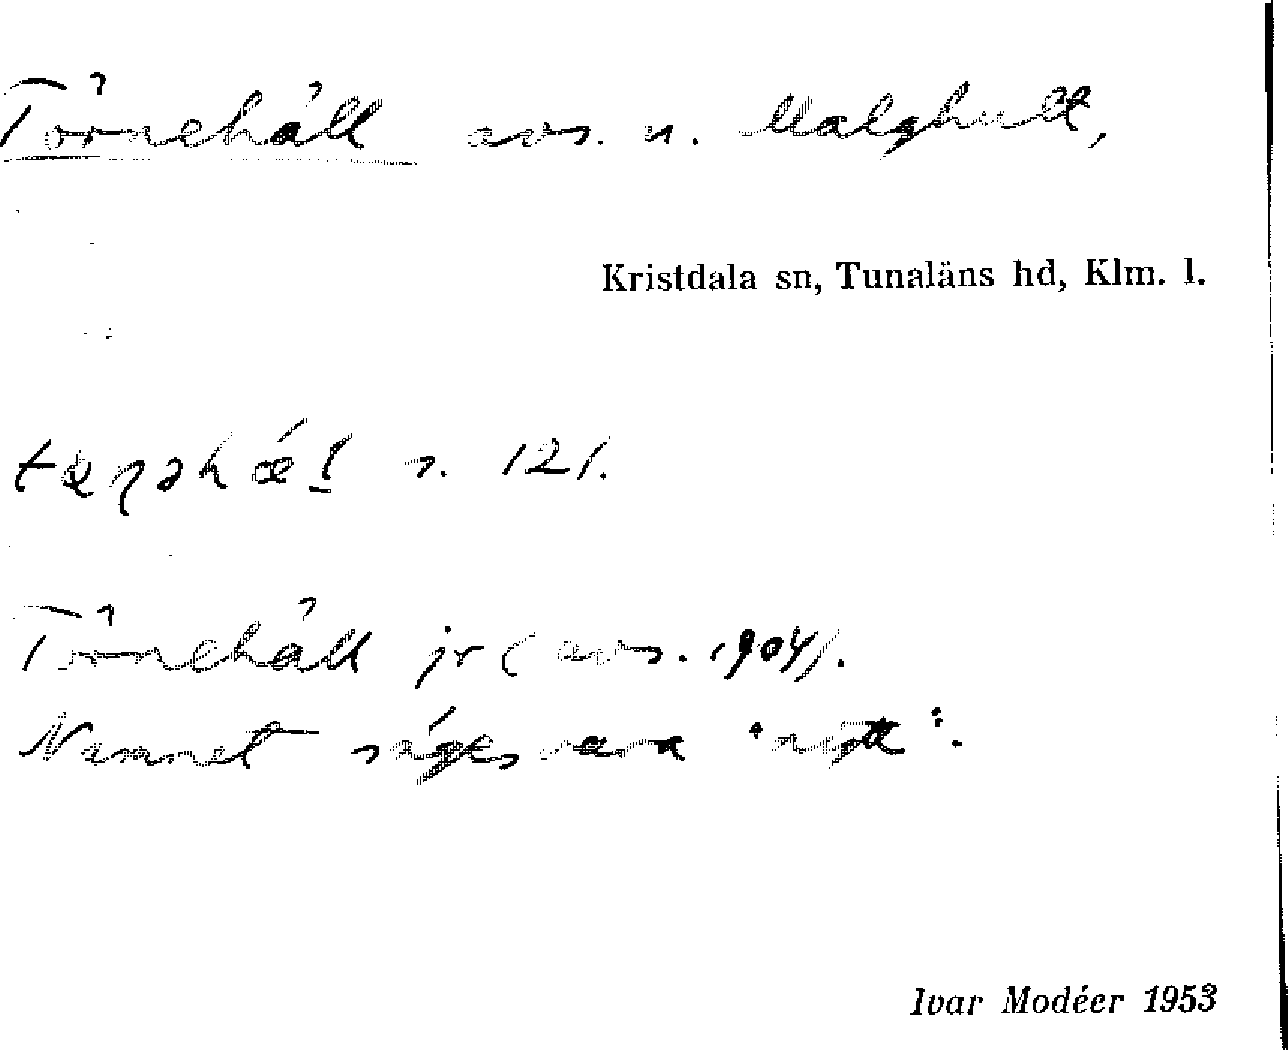 Törnehäll avs. u. Malghult,
Kristdala sn, Tunaläns hd, Klm. l.
s. 121.
Törnehäll jr (avs. 1904).
Namnet säges vara "nytt".
Ivar Modéer 1953